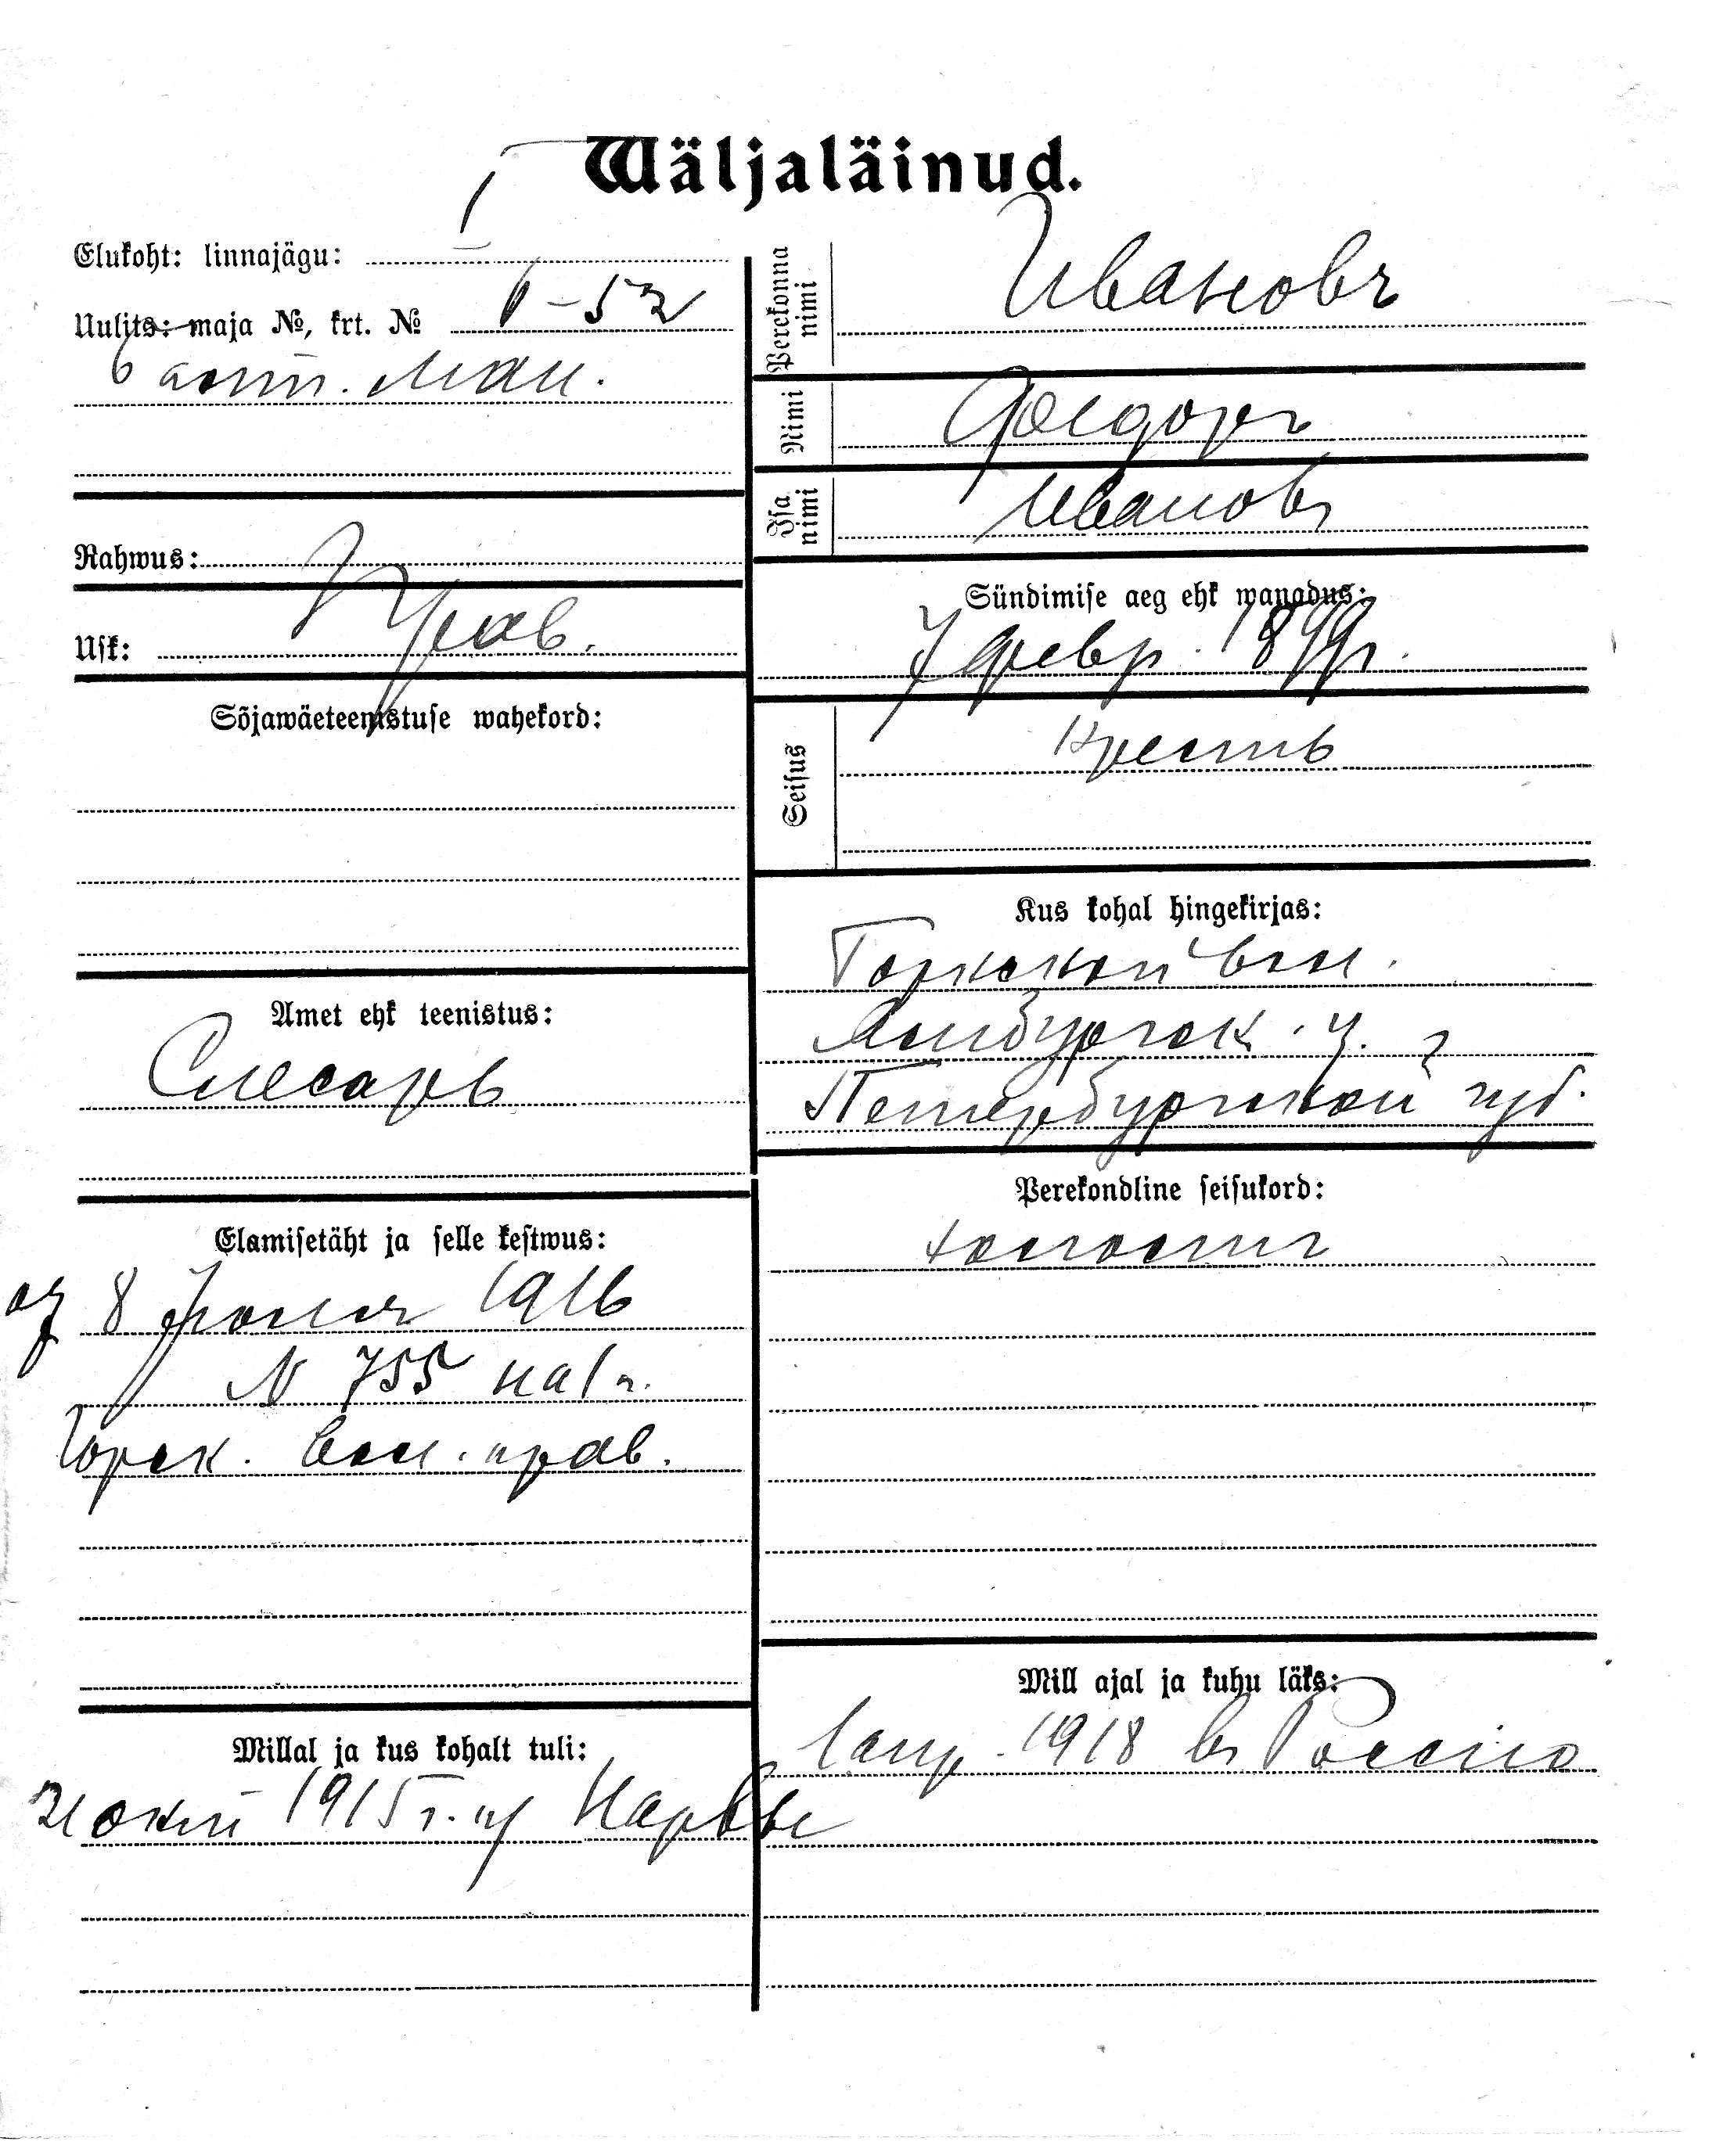 Wäljaläinud.
Elukoht: linnajägu: I
Uulits: maja №, krt. № 6-52
Rahwus:
Usk: Прав.
Sõjawäeteenistuse wahekord:
Amet ehk teenistus:
Слесарь
Elamisetäht ja selle kestwus:
8 Июня 1916
N 755 на 1 г.
Горск. вол. прав.
Millal ja kus kohalt tuli:
21 окт 1915 г. из Нарвы
Perekonna nimi
Ивановъ
Nimi
Федоръ
Isa nimi
Ивановъ
Sündimise aeg ehk wanadus:
7 февр. 1899 г.
Seisus
Крест
Kus kohal hingekirjas:
Горской вол.
Ямбургск. у.
Петербургской губ.
Perekondline seisukord:
холост
Mill ajal ja kuhu läks:
1918 въ Россiю